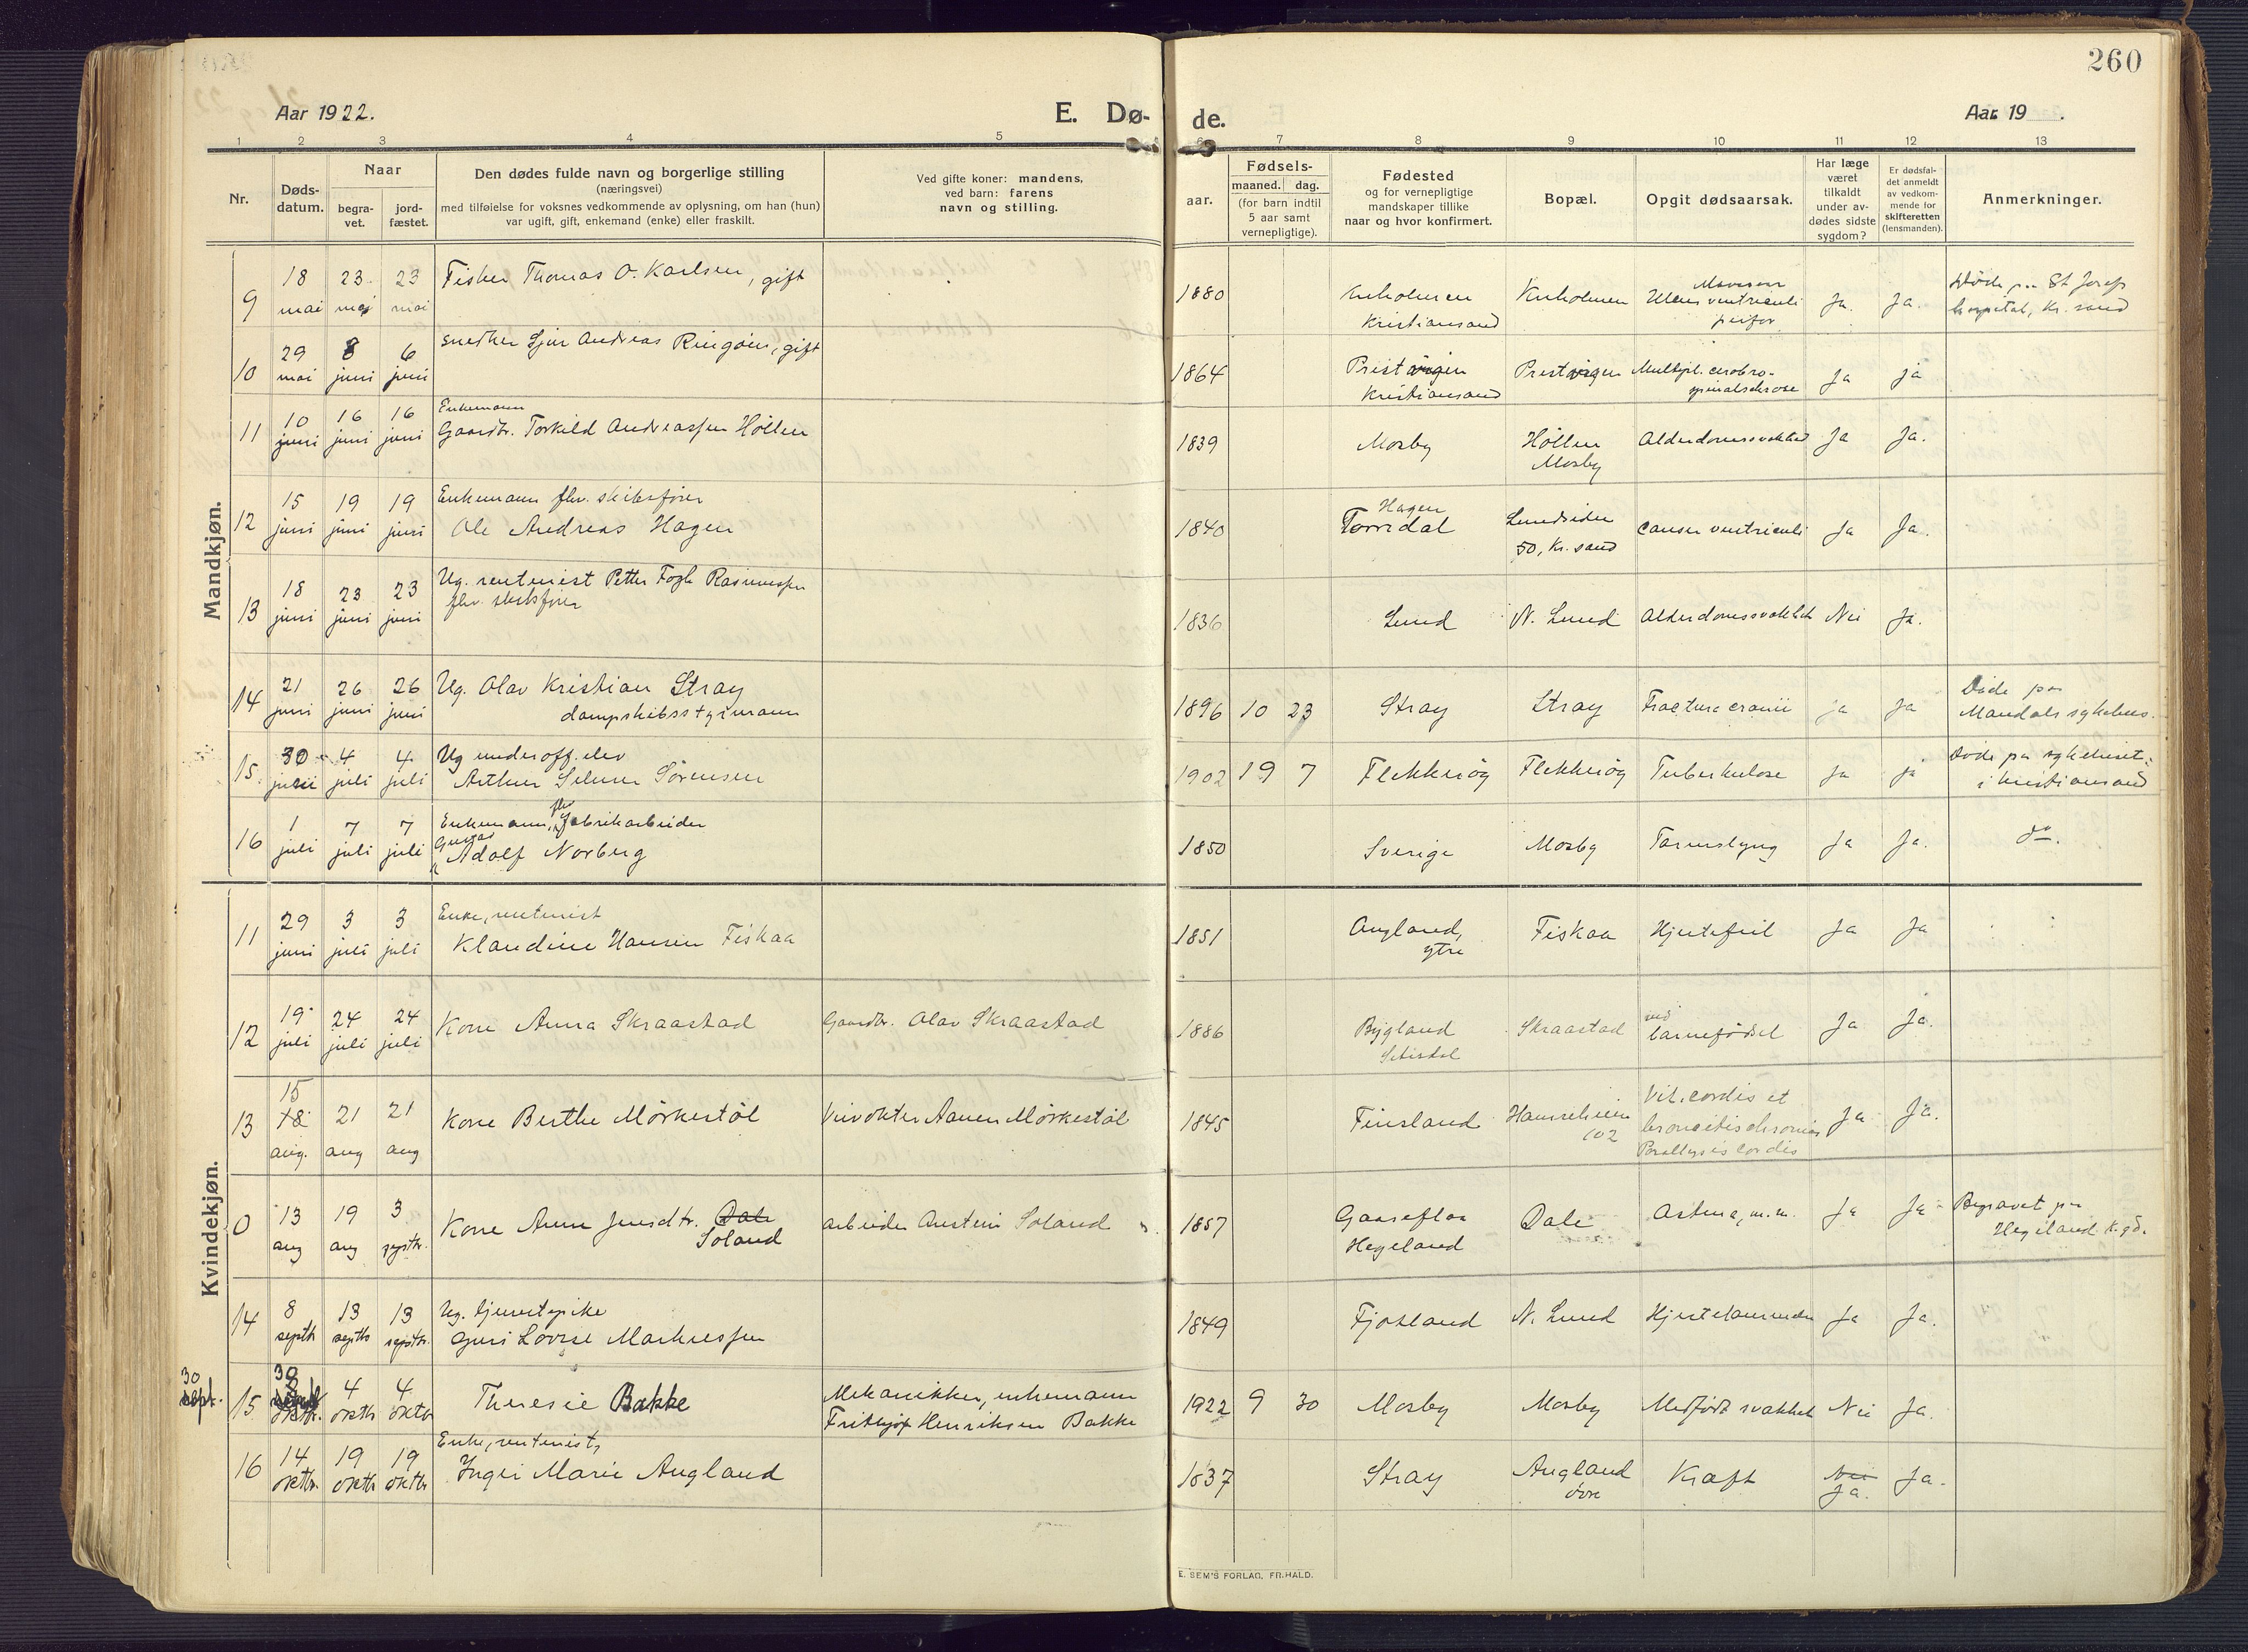 260
Aar 1922.
E. Dø-
de.
Aar 19 .
1 2 3 4 5 6 7 8 9 10 11 12 13
Nr.
Døds-
datum.
Naar
begra-
vet.
jord-
fæstet.
Den dødes fulde navn og borgerlige stilling
(næringsvei)
med tilføielse for voksnes vedkommende av oplysning, om han (hun)
var ugift, gift, enkemand (enke) eller fraskilt.
Ved gifte koner: mandens,
ved barn: farens
navn og stilling.
Fødsels-
aar.
maaned. dag.
(for barn indtil
5 aar samt
vernepligtige).
Fødested
og for vernepligtige
mandskaper tillike
naar og hvor konfirmert.
Bopæl.
Opgit dødsaarsak.
Har læge
været
tilkaldt
under av-
dødes sidste
sygdom?
Er dødsfal-
det anmeldt
av vedkom-
mende for
skifteretten
(lensmanden).
Anmerkninger.
Mandkjøn.
9 18 mai 23 mai 23 mai Fisker Thomas O. Karlsen, gift 1880 Kristiansand Ulcus ventriculi perfor Ja. Ja. Døde paa St Josefs hospital, Kr. sand
10 29 mai 8 juni 6 juni Snedker Andreas gift 1864 Kristiansand Multipl. cerebro-spinalsclerose Ja ja
11 10 juni 16 juni 16 juni Enkemann Gaardbr. Torkild Andreassen Höllen 1839 Mosby Höllen Mosby Alderdomssvakhed Ja Ja.
12 15 juni 19 juni 19 juni Enkemann fhv. skibsfører Ole Andreas Hagen 1840 Hagen Torridal Lundsiden 50, Kr. sand cancer ventriculi Ja Ja.
13 18 juni 23 juni 23 juni Ug. rentenist Petter Rasmussen fhv. skibsfører 1836 Lund N. Lund Alderdomssvakhet Nei Ja.
14 21 juni 26 juni 26 juni Ug. Olav Kristian Stray dampskibsstyrmann 1896 10 23 Stray Stray Fractura cranii ja Ja Døde paa Mandals sykehus.
15. 30 juni 4 juli 4 juli Ug underoff. elev Arthur Selmer Sörensen 1902 19 7 Flekkeröy Flekkeröy Tuberkulose ja ja Døde paa sykehuset i Kristiansand
16 1 juli 7 juli 7 juli Enkemann, fhv fabrikarbeider Gustav Adolf Norberg 1850 Sverige Mosby Tarmslyng Ja Ja. do.
Kvindekjøn.
11 29 juni 3 juli 3 juli Enke, rentenist Klaudine Hansen Fiskaa 1851 Augland, ytre Fiskaa Hjertefeil Ja Ja
12 19 juli 24 juli 24 juli Kone Anna Skraastad Gaardbr. Olav Skraastad 1886 Bygland Setesdal Skraastad ved barnefødsel Ja Ja.
13 15 18 aug. 21 aug 21 aug Kone Berthe Mörkestöl Aanen Mörkestöl 1845 Finsland 102 Vit. cordis et Paralysis cordis Ja Ja.
0 13 aug 19 aug 3 septbr. Kone Anne Jensdtr. Dale Soland arbeider Austein Soland 1857 Gaaseflaa Hegeland Dale Astma, m.m. Ja Ja Begravet paa Hegeland k.gd.
14 8 septb 13 septb 13 septbr. Ug. tjenestepike Guri Lovise Markussen 1849 Fjotland N. Lund Ja Ja.
30 sept. 15 30 oktbr. 4 oktb 4 oktbr Theresie Bakke Mekanikker, enkemann Frithjof Henriksen Bakke 1922 9 30 Mosby Mosby Medfødt svakhet Nei Ja.
16 14 oktbr. 19 oktb 19 oktbr Enke, rentenist, Inger Marie Augland 1837 Stray Augland övre Kræft Nei Ja. Ja.
E. SEM'S FORLAG, FR.HALD.